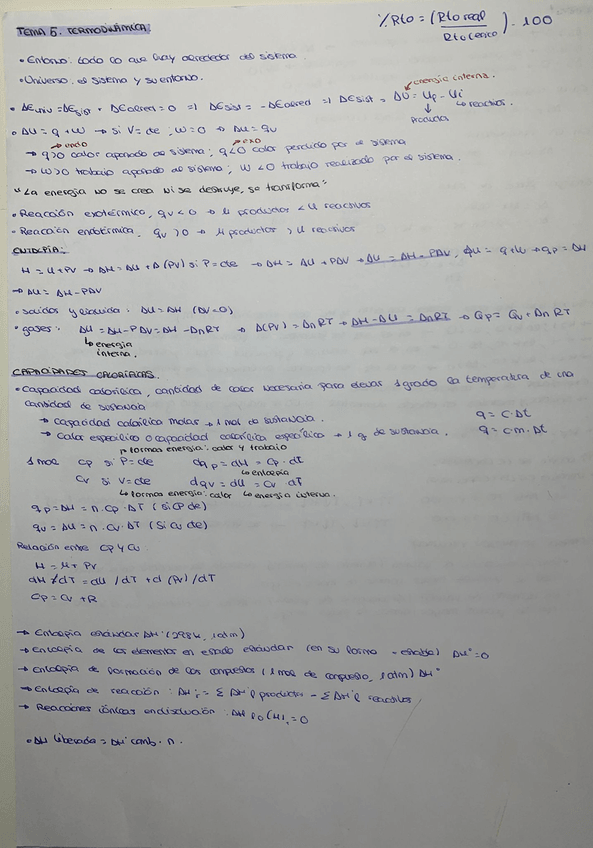 TEMA 5. TERMODINÁMICA:
% Rto = (Rto real / Rto teórico) · 100
• Entorno: todo lo que hay alrededor del sistema.
• Universo: es sistema y su entorno.
energía interna.
• ΔEuniv = ΔEsist + ΔEalred = 0 => ΔEsist = -ΔEalred => ΔEsist = ΔU = Up - Ui
↳ reactivos.
Productos
• ΔU = q + W → si V = cte ; W = 0 → ΔU = qv
endo
exo
→ q>0 calor aportado al sistema ; q<0 calor perdido por el sistema
→ W>0 trabajo aportado al sistema ; W<0 trabajo realizado por el sistema.
"La energía no se crea ni se destruye, se transforma"
• Reacción exotérmica, qv < 0 → U productos < U reactivos
• Reacción endotérmica, qv > 0 → U productos > U reactivos
ENTALPIA:
H = U + PV → ΔH = ΔU + Δ(PV) si P = cte → ΔH = ΔU + PΔV → ΔU = ΔH - PΔV, ΔU = q + W → qp = ΔH
→ ΔU = ΔH - PΔV
• Solidos y líquidos : ΔU = ΔH (ΔV = 0)
• gases : ΔU = ΔH - PΔV = ΔH - ΔnRT → Δ(PV) = ΔnRT → ΔH - ΔU = ΔnRT → Qp = Qv + ΔnRT
↳ energía
interna.
CAPACIDADES CALORÍFICAS.
• Capacidad calorífica, cantidad de calor necesaria para elevar 1 grado la temperatura de una
cantidad de sustancia
→ Capacidad calorífica molar → 1 mol de sustancia.
q = C · Δt
→ Calor específico o capacidad calorífica específica → 1 g de sustancia.
q = c · m · Δt
formas energía: calor y trabajo
1 mol Cp si P = cte dqp = dH = Cp · dT
↳ entalpía
Cv si V = cte dqv = dU = Cv dT
↳ formas energía: calor ↳ energía interna.
qp = ΔH = n · Cp · ΔT (si Cp cte)
qv = ΔU = n · Cv · ΔT (si Cv cte)
Relación entre Cp y Cv
H = U + PV
dH / dT = dU / dT + d (PV) / dT
Cp = Cv + R
→ Entalpia estándar ΔH° (298K, 1atm)
→ Entalpía de los elementos en estado estándar (en su forma + estable) ΔH° = 0
→ Entalpía de formación de los compuestos (1 mol de compuesto, 1atm) ΔH°
→ Entalpía de reacción : ΔH°r = Σ ΔH°f productos - Σ ΔH°f reactivos
→ Reacciones iónicas en disolución :
• ΔH liberada = ΔH° comb · n.